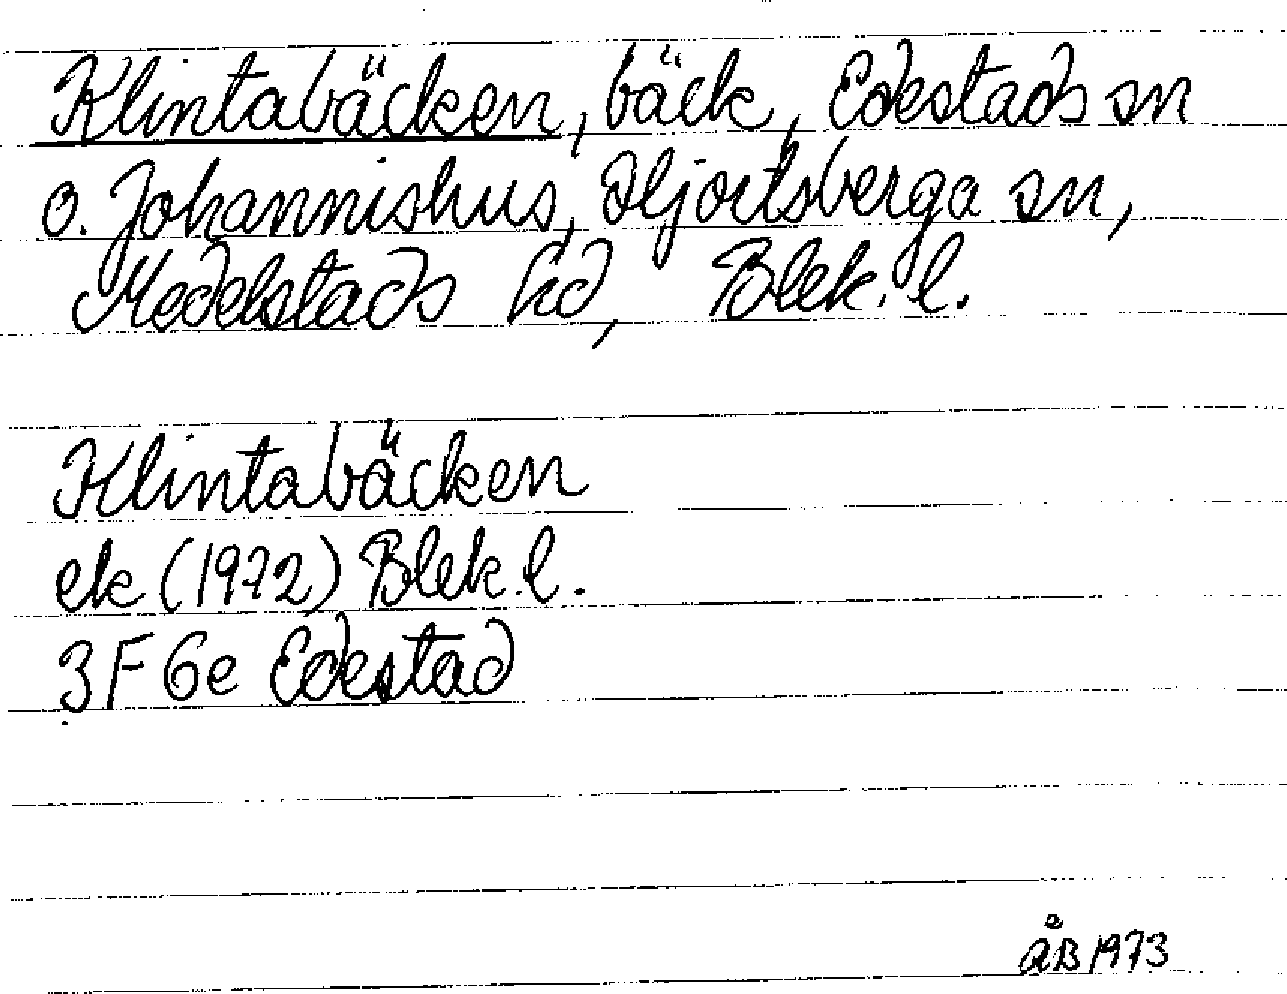 Klintabäcken, bäck, Edestads sn
o. Johannishus, Hjortsberga sn,
Medelstads hd, Blek. l.
Klintabäcken
ek (1972) Blek. l.
3F 6e Edestad
ÅB 1973